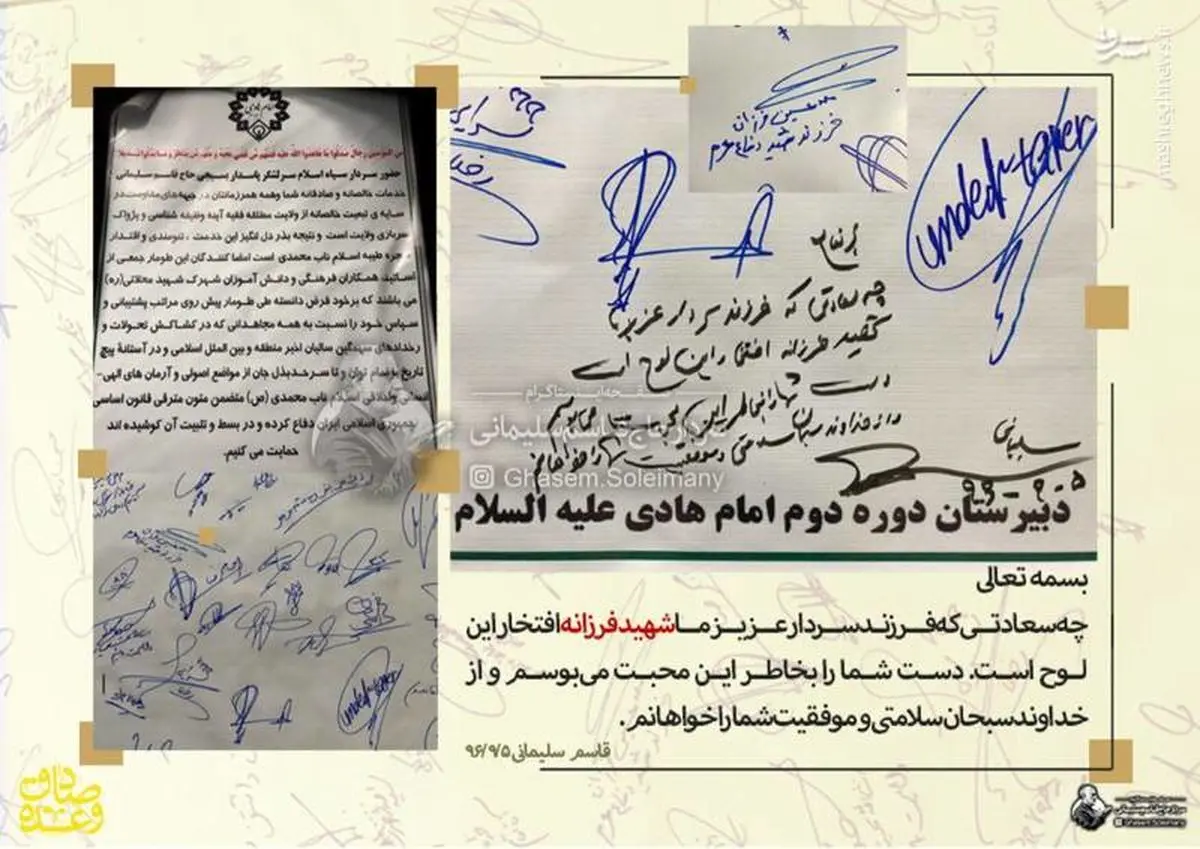 مشرق
mashreghnews.ir
من المؤمنین رجال صدقوا ما عاهدوا الله علیه فمنهم من قضی نحبه و منهم من ینتظر و ما بدلوا تبدیلا
حضور سردار سپاه اسلام سرلشکر پاسدار بسیجی حاج قاسم سلیمانی
خدمات خالصانه و صادقانه شما وهمه همرزمانتان در جبهه‌های مقاومت در
سایه ی تبعیت خالصانه از ولایت مطلقه فقیه آینه وظیفه شناسی و پژواک
سربازی ولایت است و نتیجه بذر دل انگیز این خدمت ، تنومندی و اقتدار
شجره طیبه اسلام ناب محمدی است امضا کنندگان این طومار جمعی از
اساتید، همکاران فرهنگی و دانش آموزان شهرک شهید محلاتی(ره)
می باشند که برخود فرض دانسته طی طومار پیش روی مراتب پشتیبانی و
سپاس خود را نسبت به همه مجاهدانی که در کشاکش تحولات و
رخدادهای سهمگین سالیان اخیر منطقه و بین الملل اسلامی و در آستانهٔ پیچ
تاریخ بوضام توان و تا سرحد بذل جان از مواضع اصولی و آرمان های الهی-
انسانی واخلاقی اسلام ناب محمدی (ص) متضمن متون مترقی قانون اساسی
جمهوری اسلامی ایران دفاع کرده و در بسط و تثبیت آن کوشیده اند
حمایت می کنیم.
محمدحسین فرزانه
فرزند شهید مدافع حرم
undertaker
بسمه تعالی
چه سعادتی که فرزند سردار عزیز ما
شهید فرزانه افتخار این لوح است
دست شما را بخاطر این محبت می‌بوسم
و از خداوند سبحان سلامتی و موفقیت شما را خواهانم
سلیمانی
۹۶-۹-۵
صفحه اینستاگرام
سردار حاج قاسم سلیمانی
Ghasem.Soleimany
دبیرستان دوره دوم امام هادی علیه السلام
بسمه تعالی
چه سعادتی که فرزند سردار عزیز ما شهید فرزانه افتخار این
لوح است. دست شما را بخاطر این محبت می‌بوسم و از
خداوند سبحان سلامتی و موفقیت شما را خواهانم.
قاسم سلیمانی ۹۶/۹/۵
وعده صادق
سردار حاج قاسم سلیمانی
Ghasem.Soleimany